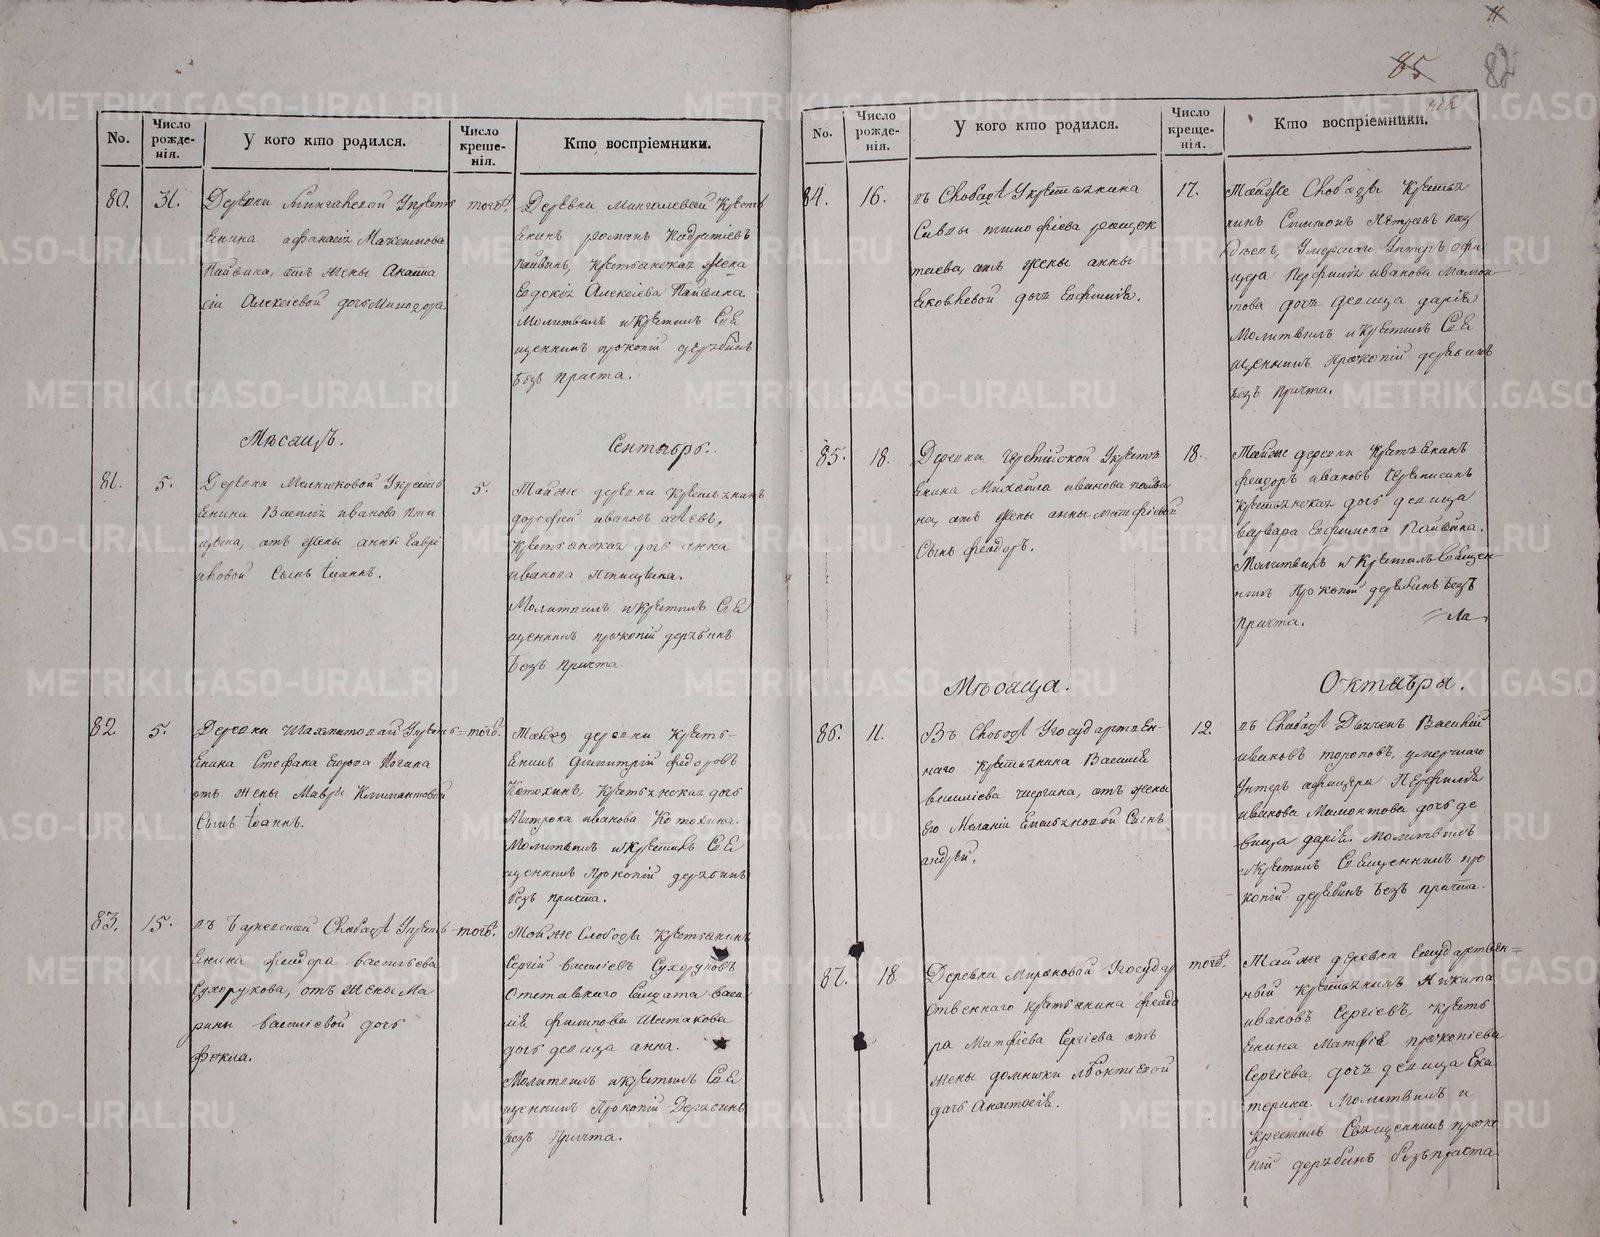 85 82
No. Число рожде-нія. У кого кто родился. Число креще-нія. Кто воспріемники.
80. 31. Деревни Мингалевской у крестъ
янина афанасія Максимова
Пайвина, отъ жены Анаста
сіи Алексіевой дочь Минодора
того ж.
Деревни Мингалевской Крестъ
янинъ романъ Кодратіевъ
пайвинъ, крестьянская жена
Евдокія Алексіева Пайвина.
Молитвилъ и крестилъ Свя
щенникъ прокопій дерябинъ
безъ причта.
Мѣсяцъ. Сентябрь.
81. 5. Деревни у крестъ
янина Василія иванова пти
цына, отъ жены анны гаври
иловой Сынъ Іоаннъ.
5.
Тойже деревни крестьянинъ
дорофей ивановъ
крестьянская дочь анна
иванова птицына.
Молитвилъ и крестилъ Свя
щенникъ прокопій дерябинъ
безъ причта
82 5. Деревни у крестъ
янина Стефана Егорова
отъ жены Мавры Климантовой
Сынъ Іоаннъ.
того ж.
Тойже деревни кресть-
янинъ Димитрій федоровъ
Котохинъ, крестьянская дочь
иванова Котохина.
Молитвилъ и крестилъ Свя
щенникъ Прокопій дерябинъ
безъ причта.
83. 15. въ Слободѣ у кресть
янина феодора васильева
Сухорукова, отъ жены Ма
рины василіевой дочь
фекла.
того ж.
Той же Слободы крестьянинъ
Сергій василіевъ Сухоруковъ
Отставнаго Солдата васи
лія филипова Шестакова
дочь девица анна.
Молитвилъ и крестилъ Свя
щенникъ Прокопій Дерябинъ
безъ Причта.
No. Число рожде-нія. У кого кто родился. Число креще-нія. Кто воспріемники.
84. 16. въ Слободѣ у крестьянина
Саввы тимофіева
отъ жены анны
Яковлевой дочь Евфимія.
17.
Тойже Слободы крестья
нинъ Петровъ
Умершаго Унтеръ офи
цера Перфилія иванова Мамон
това дочь девица дарія
Молитвилъ и крестилъ Свя
щенникъ прокопій дерябинъ
безъ причта.
85. 18. Деревни у крестъ
янина Михайла иванова пайви
на, отъ жены анны Матфіевой
Сынъ феодоръ.
18.
Тойже деревни крестьянинъ
феодоръ ивановъ
крестьянская дочь девица
варвара Пайвина.
Молитвилъ и крестилъ Священ-
никъ Прокопій дерябинъ безъ
причта.
Мѣсяца. Октября.
86. 11. Въ Слободѣ у государствен-
наго крестьянина Василія
василіева чиргина, отъ жены
его Меланіи Емельяновой Сынъ
андрей.
12.
въ Слободѣ Дьяченъ Василей
ивановъ тороповъ, умершаго
унтеръ афицера Перфилія
иванова Мамонтова дочь де
вица дарія. Молитвилъ
и крестилъ Священникъ про
копій дерябинъ безъ причта.
87. 18. Деревни Мироновой у государ
ственнаго крестьянина феодо
ра Матфіева Сергіева отъ
жены домники леонтіевой
дочь Анастасія.
того ж.
Тойже деревни Государствен=
ный крестьянинъ Никита
ивановъ Сергіевъ, кресть
янина Матфія прокопіева
Сергіева, дочь девица Ека
терина. Молитвилъ и
крестилъ Священникъ проко
пій дерябинъ безъ причта
METRIKI.GASO-URAL.RU